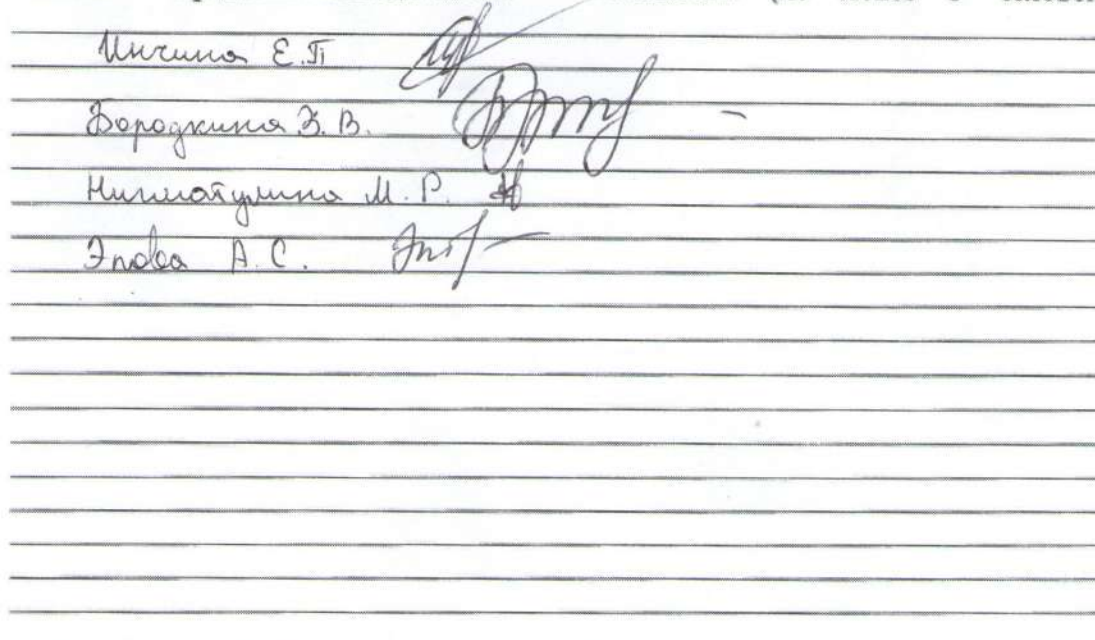 Инчина Е.П
Бородкина З.В.
Нигматулина М.Р.
Эпова А.С.